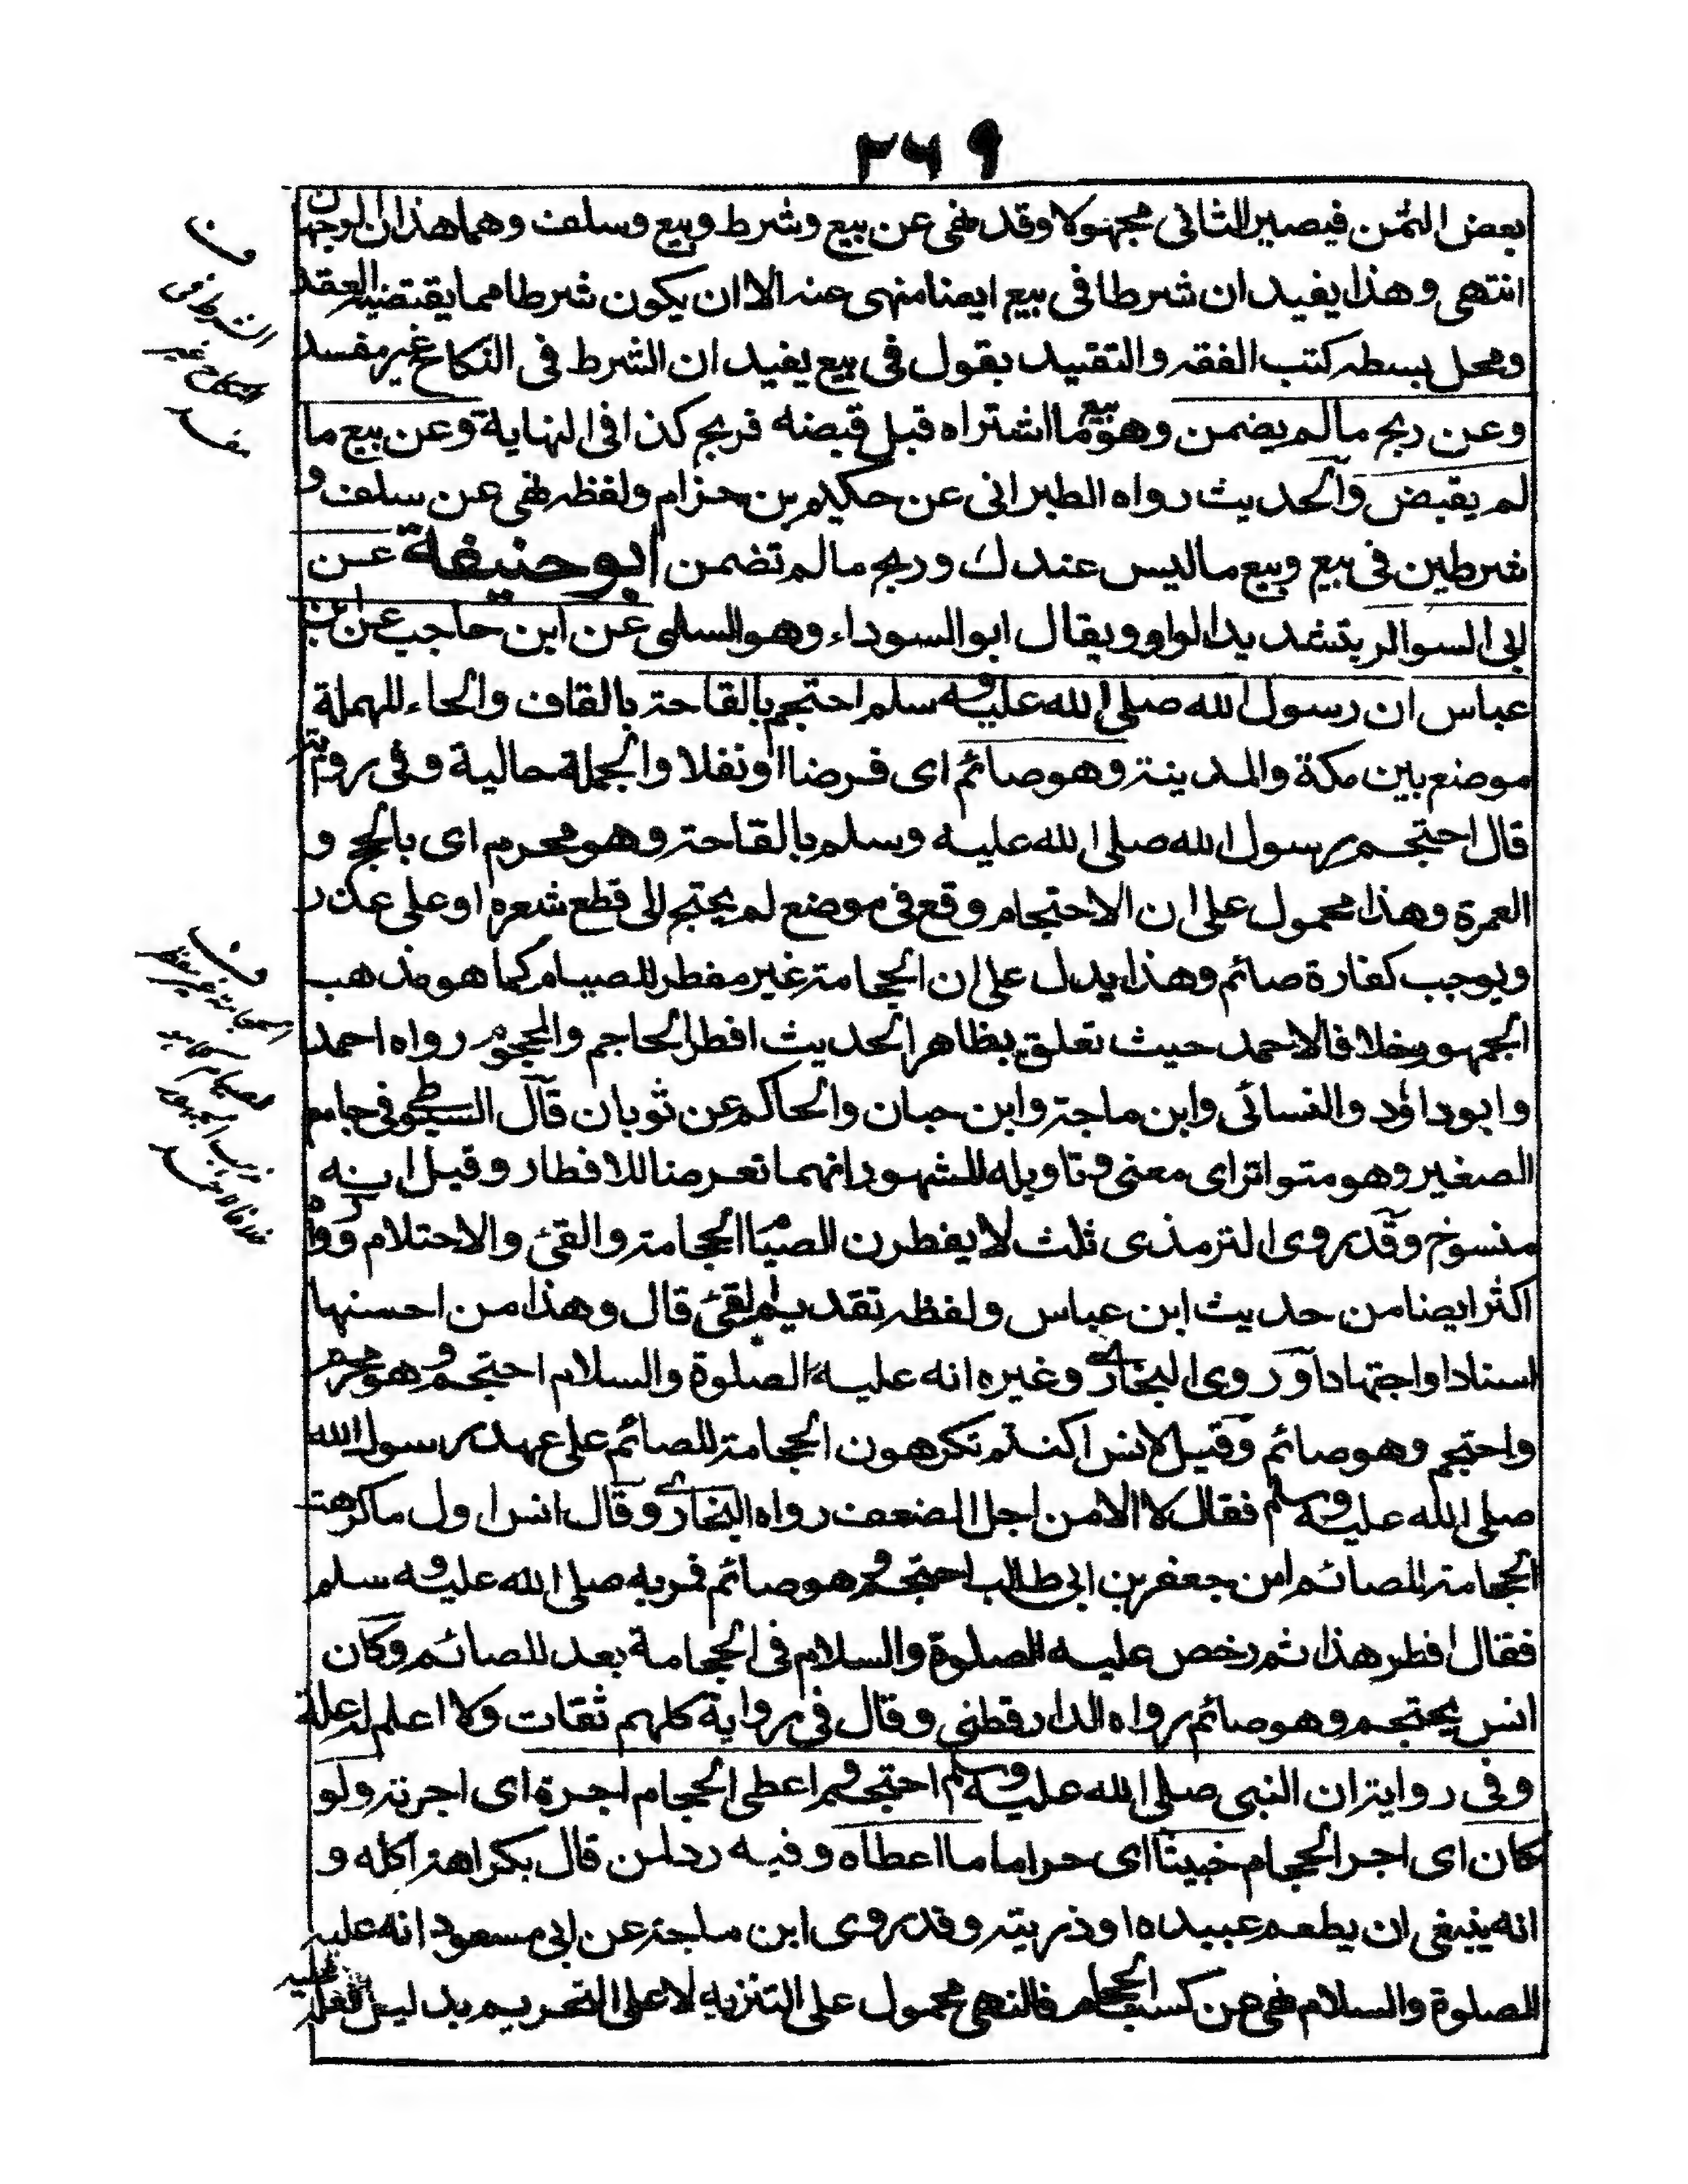 ٢٦٩
بعض الثمن فيصير الثانى مجهولا وقد نهى عن بيع وشرط وبيع وسلف وهما هذان الوجهان
انتهى وهذا يفيد ان شرطا فى بيع ايضا منهى عنه الا ان يكون شرطا مما يقتضيه العقد
ومحل بسطه كتب الفقه والتقييد بقول فى بيع يفيد ان الشرط فى النكاح غير مفسد
وعن ربح ما لم يضمن وهو بيع ما اشتراه قبل قبضه فربح كذا فى النهاية وعن بيع ما
لم يقبض والحديث رواه الطبرانى عن حكيم بن حزام ولفظه نهى عن سلف و
شرطين فى بيع وبيع ما ليس عندك وربح ما لم تضمن ابو حنيفة عن
ابى السوار بتشديد الواو ويقال ابو السوداء وهو السلمى عن ابن حاجب عن ابن
عباس ان رسول الله صلى الله عليه وسلم احتجم بالقاحة بالقاف والحاء المهملة
موضع بين مكة والمدينة وهو صائم اى فرضا او نفلا والجملة حالية وفى رواية
قال احتجم رسول الله صلى الله عليه وسلم بالقاحة وهو محرم اى بالحج و
العمرة وهذا محمول على ان الاحتجام وقع فى موضع لم يحتج الى قطع شعره او على عذر
ويوجب كفارة صائم وهذا يدل على ان الحجامة غير مفطر للصيام كما هو مذهب
الجمهور خلافا لاحمد حيث تعلق بظاهر الحديث افطر الحاجم والمحجوم رواه احمد
وابو داؤد والنسائى وابن ماجة وابن حبان والحاكم عن ثوبان قال السيوطى فى جامع
الصغير وهو متواتر اى معنى وتاويله المشهور انهما تعرضا للافطار وقيل انه
منسوخ وقد روى الترمذى ثلث لا يفطرن الصيام الحجامة والقئ والاحتلام ورواه
اكثر ايضا من حديث ابن عباس ولفظه تقديم القئ قال وهذا من احسنها
اسنادا واجتهادا وروى البخارى وغيره انه عليه الصلوة والسلام احتجم وهو محرم
واحتجم وهو صائم وقيل لانس اكنتم تكرهون الحجامة للصائم على عهد رسول الله
صلى الله عليه وسلم فقال لا الا من اجل الضعف رواه البخارى وقال انس اول ما كرهت
الحجامة للصائم ان جعفر بن ابى طالب احتجم وهو صائم فمر به صلى الله عليه وسلم
فقال افطر هذا ثم رخص عليه الصلوة والسلام فى الحجامة بعد للصائم وكان
انس يحتجم وهو صائم رواه الدارقطنى وقال فى رواية كلهم ثقات ولا اعلم له علة
وفى رواية ان النبى صلى الله عليه وسلم احتجم واعطى الحجام اجرة اى اجرته ولو
كان اى اجر الحجام خبيثا اى حراما ما اعطاه وفيه رد لمن قال بكراهة اكله و
انه ينبغى ان يطعم عبيده او ذريته وقد روى ابن ماجة عن ابى مسعود انه عليه
الصلوة والسلام نهى عن كسب الحجام فالنهى محمول على التنزيه لا على التحريم بدليل فعله